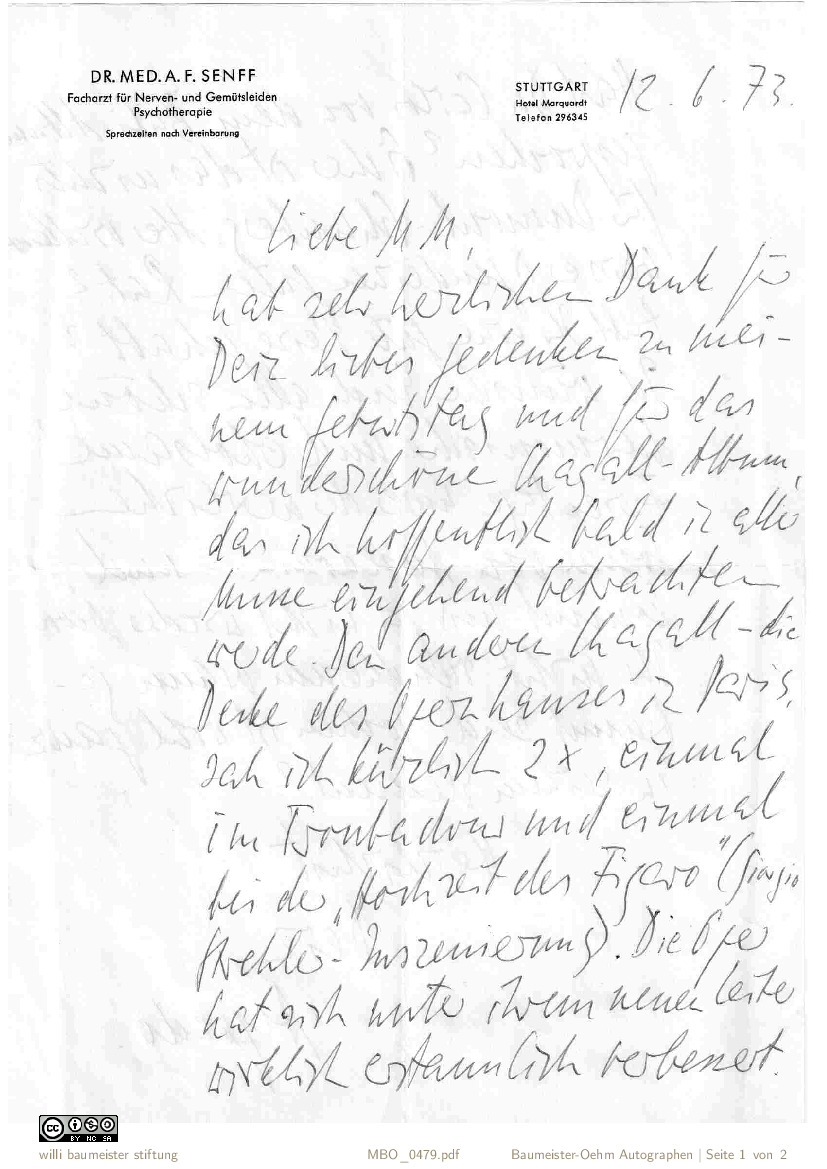 DR. MED. A. F. SENFF
Facharzt für Nerven- und Gemütsleiden
Psychotherapie
Sprechzeiten nach Vereinbarung
STUTTGART
Hotel Marquardt
Telefon 296345
12. 6. 73.
Liebe MM,
hab sehr herzlichen Dank für
Dein liebes Gedenken zu mei-
nem Geburtstag und für das
wunderschöne Chagall-Album,
das ich hoffentlich bald in aller
Musse eingehend betrachten
werde. Den anderen Chagall – die
Decke des Opernhauses in Paris,
sah ich kürzlich 2x, einmal
im Troubadour und einmal
bei der „Hochzeit des Figaro" (Giorgio
Strehler-Inszenierung). Die Oper
hat sich unter ihrem neuen Leiter
wirklich erstaunlich verbessert.
CC BY NC SA
willi baumeister stiftung
MBO_0479.pdf
Baumeister-Oehm Autographen | Seite 1 von 2